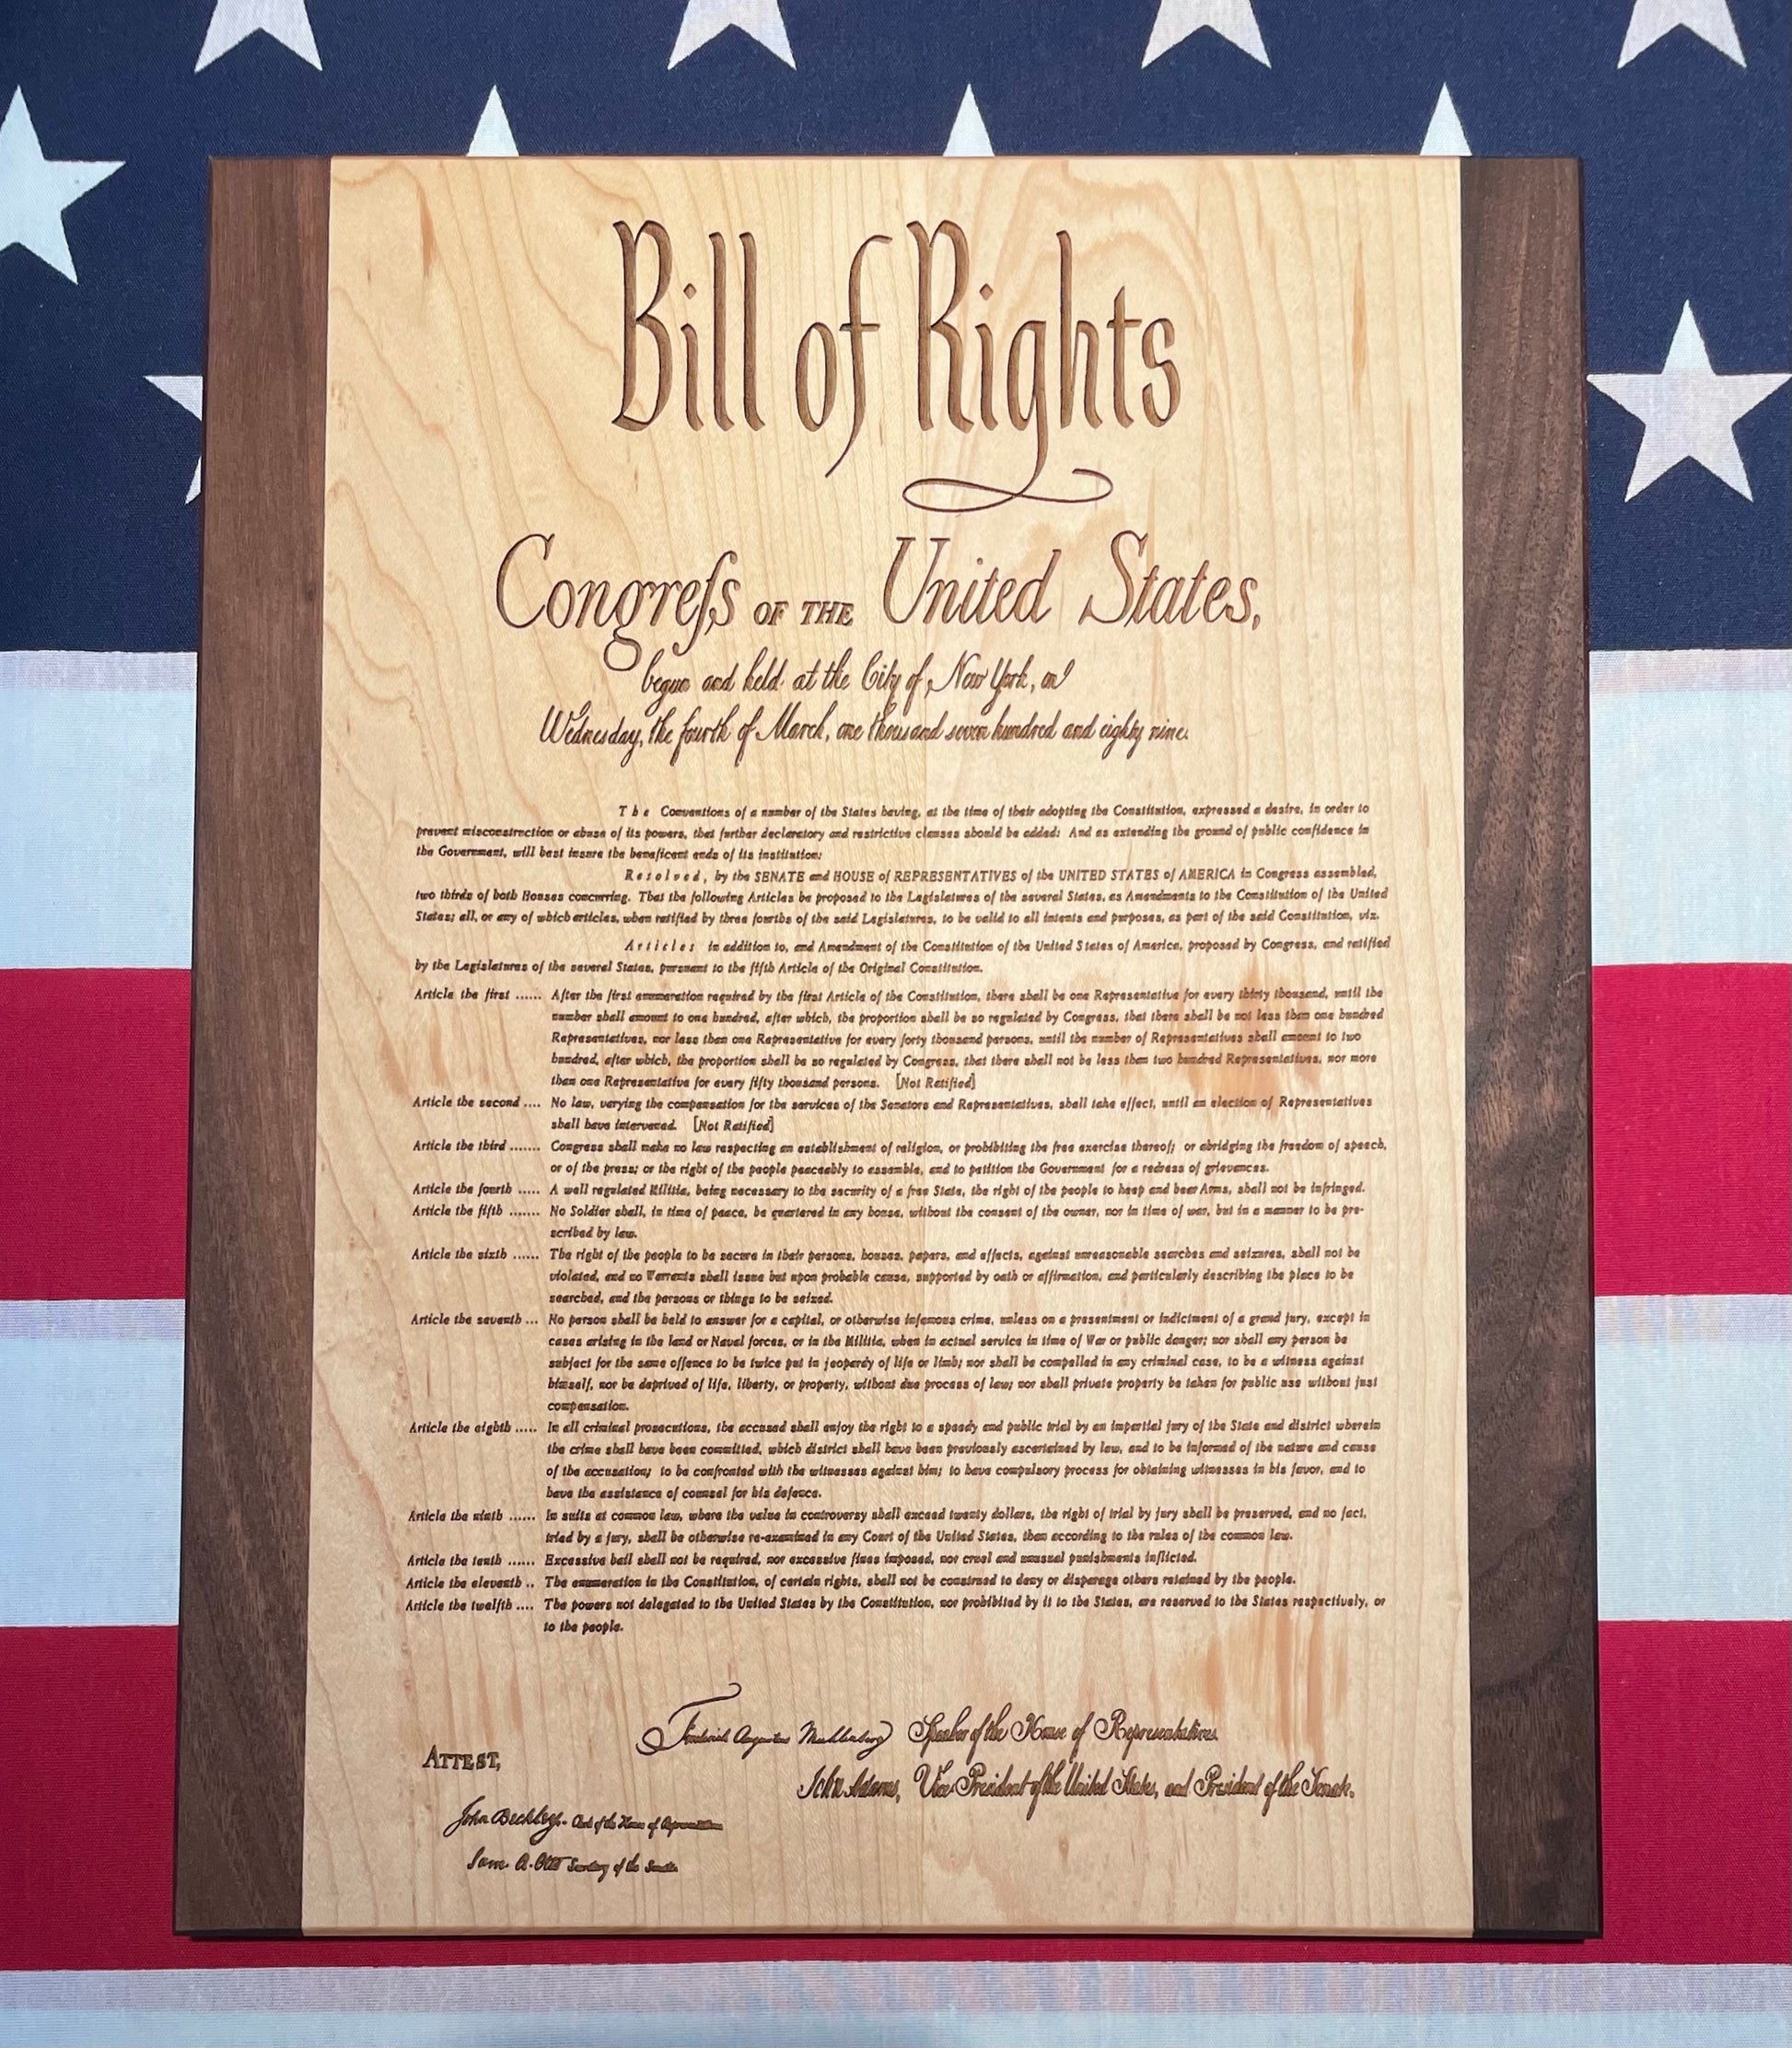 Bill of Rights
Congreſs OF THE United States,
begun and held at the City of New York, on
Wednesday, the fourth of March, one thousand seven hundred and eighty nine.
The Conventions of a number of the States having, at the time of their adopting the Constitution, expressed a desire, in order to
prevent misconstruction or abuse of its powers, that further declaratory and restrictive clauses should be added: And as extending the ground of public confidence in
the Government, will best insure the beneficent ends of its institution:
Resolved, by the SENATE and HOUSE of REPRESENTATIVES of the UNITED STATES of AMERICA in Congress assembled,
two thirds of both Houses concurring. That the following Articles be proposed to the Legislatures of the several States, as Amendments to the Constitution of the United
States; all, or any of which articles, when ratified by three fourths of the said Legislatures, to be valid to all intents and purposes, as part of the said Constitution, viz.
Articles in addition to, and Amendment of the Constitution of the United States of America, proposed by Congress, and ratified
by the Legislatures of the several States, pursuant to the fifth Article of the Original Constitution.
Article the first ...... After the first enumeration required by the first Article of the Constitution, there shall be one Representative for every thirty thousand, until the
number shall amount to one hundred, after which, the proportion shall be so regulated by Congress, that there shall be not less than one hundred
Representatives, nor less than one Representative for every forty thousand persons, until the number of Representatives shall amount to two
hundred, after which, the proportion shall be so regulated by Congress, that there shall not be less than two hundred Representatives, nor more
than one Representative for every fifty thousand persons. [Not Ratified]
Article the second .... No law, varying the compensation for the services of the Senators and Representatives, shall take effect, until an election of Representatives
shall have intervened. [Not Ratified]
Article the third ....... Congress shall make no law respecting an establishment of religion, or prohibiting the free exercise thereof; or abridging the freedom of speech,
or of the press; or the right of the people peaceably to assemble, and to petition the Government for a redress of grievances.
Article the fourth ..... A well regulated Militia, being necessary to the security of a free State, the right of the people to keep and bear Arms, shall not be infringed.
Article the fifth ....... No Soldier shall, in time of peace, be quartered in any house, without the consent of the owner, nor in time of war, but in a manner to be pre-
scribed by law.
Article the sixth ...... The right of the people to be secure in their persons, houses, papers, and effects, against unreasonable searches and seizures, shall not be
violated, and no Warrants shall issue but upon probable cause, supported by oath or affirmation, and particularly describing the place to be
searched, and the persons or things to be seized.
Article the seventh ... No person shall be held to answer for a capital, or otherwise infamous crime, unless on a presentment or indictment of a grand jury, except in
cases arising in the land or Naval forces, or in the Militia, when in actual service in time of War or public danger; nor shall any person be
subject for the same offence to be twice put in jeopardy of life or limb; nor shall be compelled in any criminal case, to be a witness against
himself, nor be deprived of life, liberty, or property, without due process of law; nor shall private property be taken for public use without just
compensation.
Article the eighth ..... In all criminal prosecutions, the accused shall enjoy the right to a speedy and public trial by an impartial jury of the State and district wherein
the crime shall have been committed, which district shall have been previously ascertained by law, and to be informed of the nature and cause
of the accusation; to be confronted with the witnesses against him; to have compulsory process for obtaining witnesses in his favor, and to
have the assistance of counsel for his defence.
Article the ninth ...... In suits at common law, where the value in controversy shall exceed twenty dollars, the right of trial by jury shall be preserved, and no fact,
tried by a jury, shall be otherwise re-examined in any Court of the United States, than according to the rules of the common law.
Article the tenth ...... Excessive bail shall not be required, nor excessive fines imposed, nor cruel and unusual punishments inflicted.
Article the eleventh .. The enumeration in the Constitution, of certain rights, shall not be construed to deny or disparage others retained by the people.
Article the twelfth .... The powers not delegated to the United States by the Constitution, nor prohibited by it to the States, are reserved to the States respectively, or
to the people.
Frederick Augustus Muhlenberg Speaker of the House of Representatives.
ATTEST,
John Adams, Vice-President of the United States, and President of the Senate.
John Beckley,- Clerk of the House of Representatives
Sam. A. Otis Secretary of the Senate